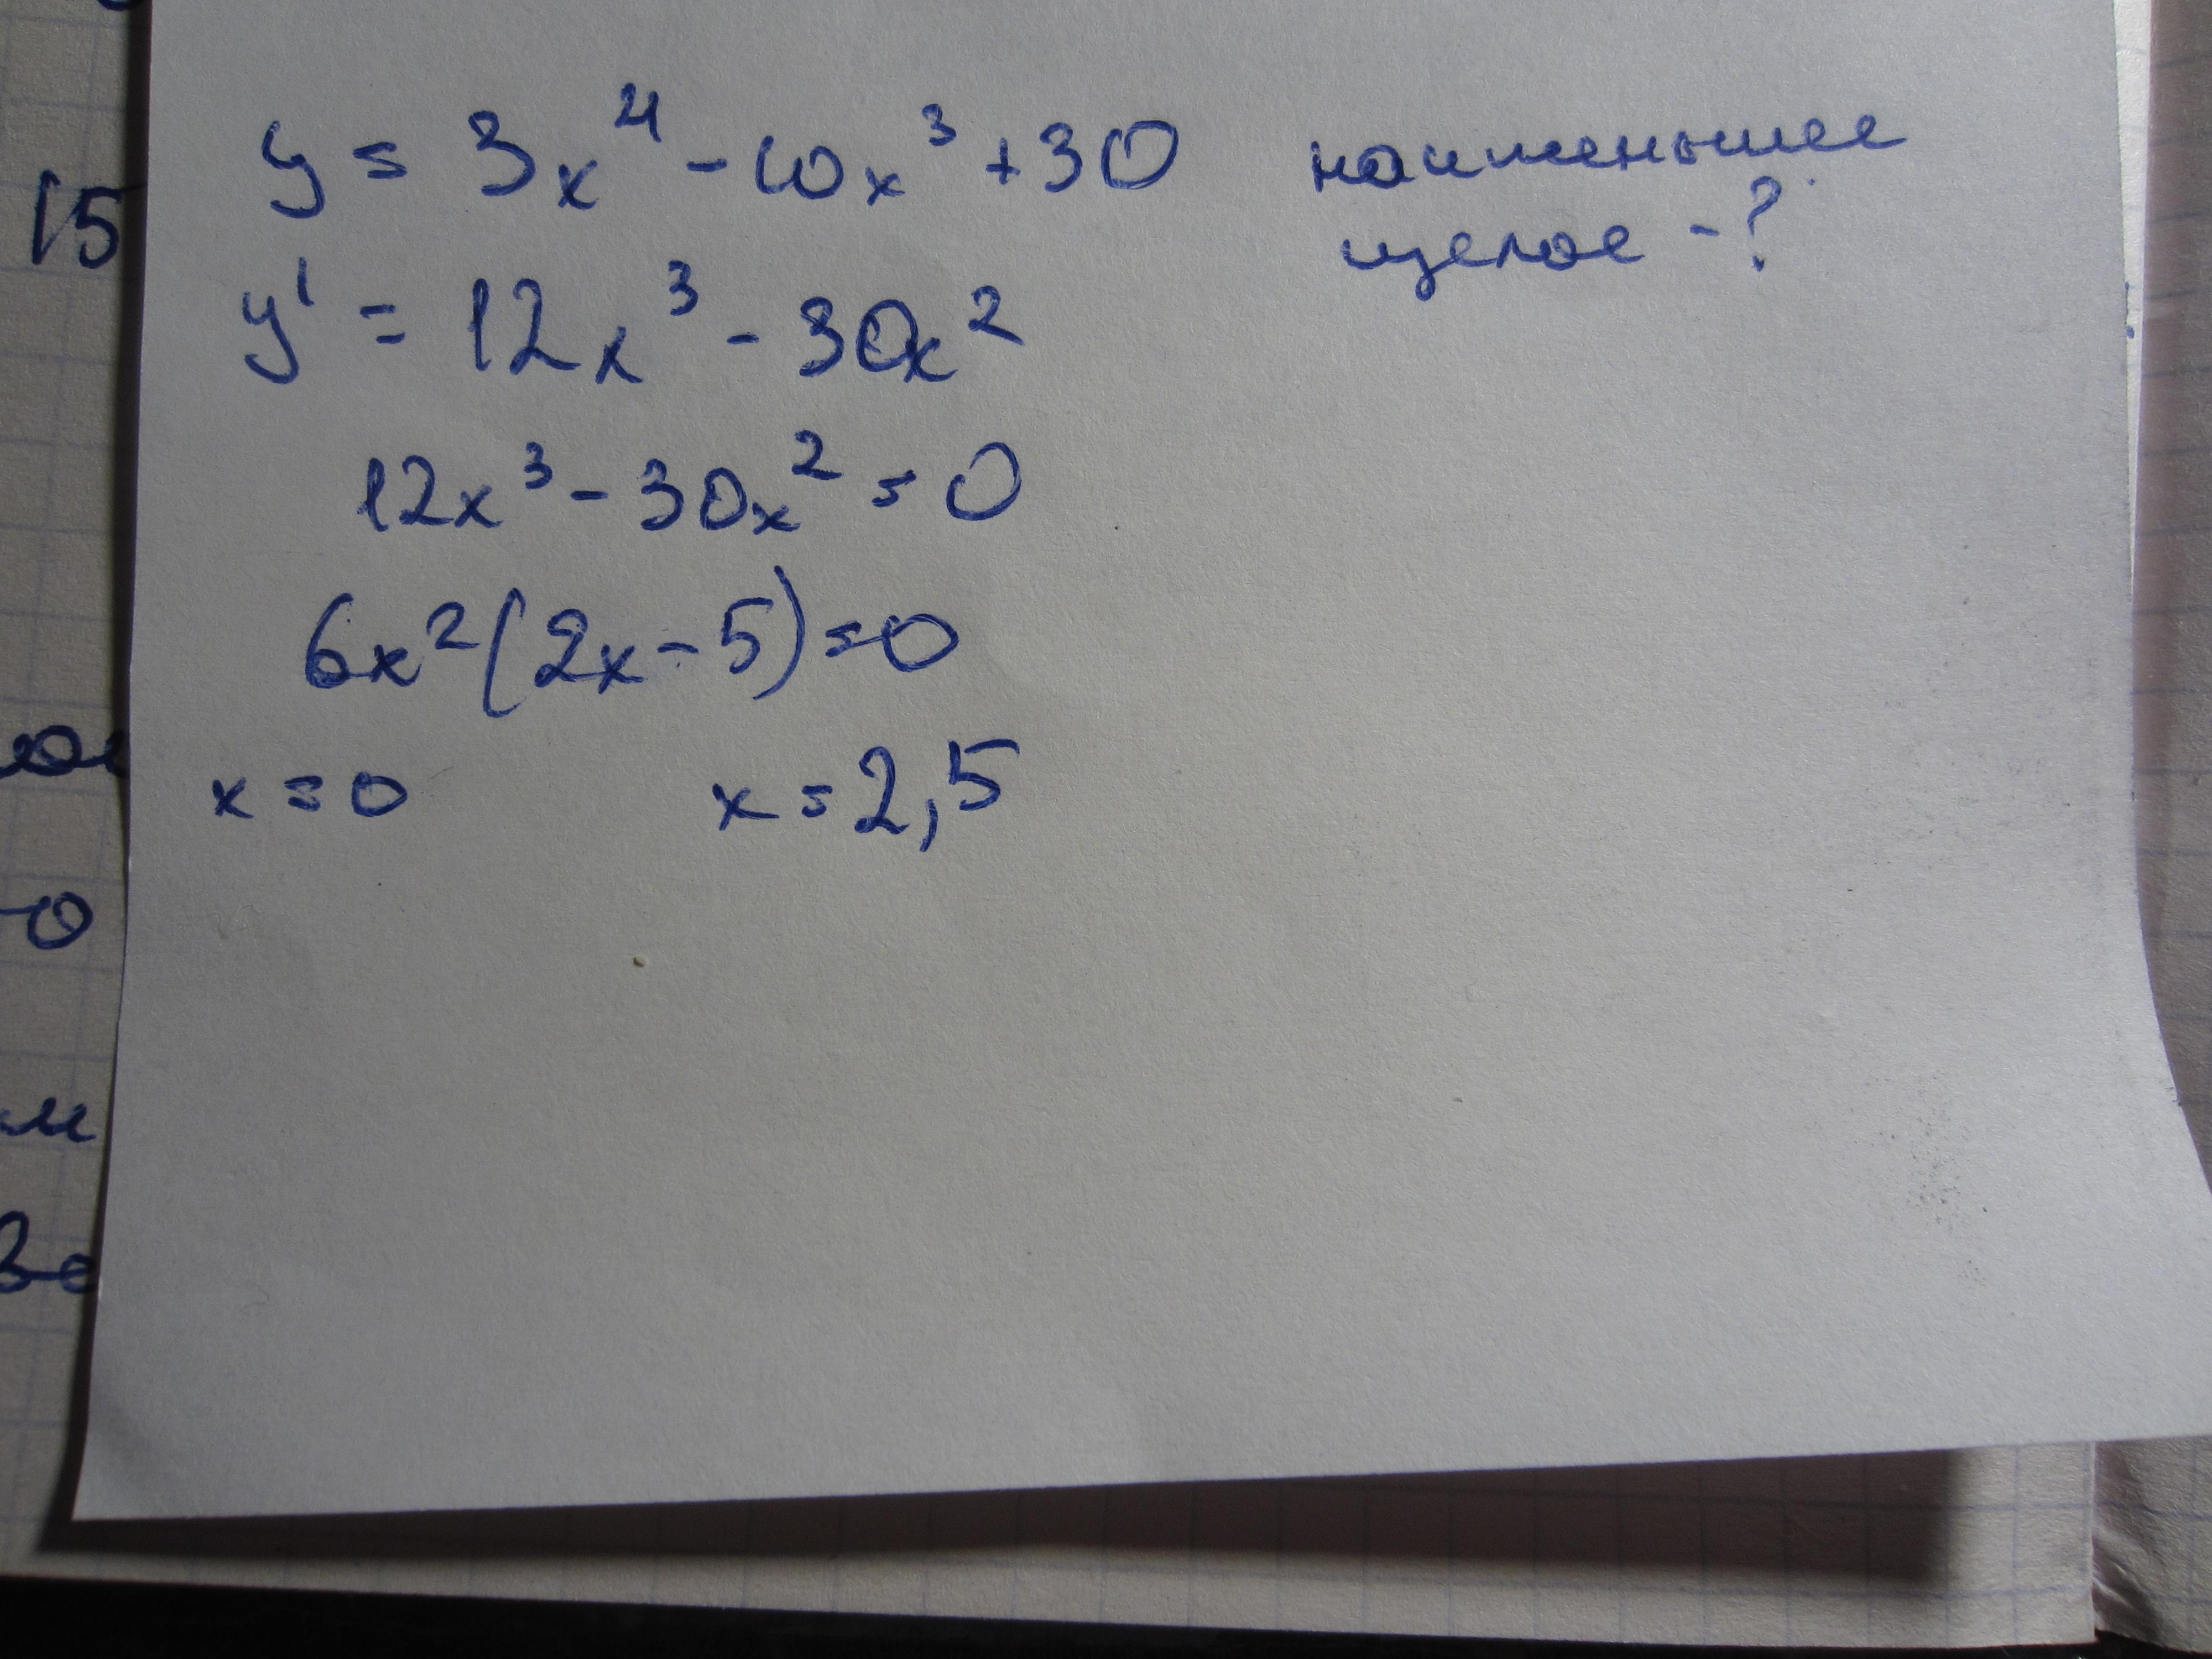 y = 3x⁴ - 10x³ + 30 наименьшее
целое - ?
15
y' = 12x³ - 30x²
12x³ - 30x² = 0
6x²(2x - 5) = 0
x = 0 x = 2,5